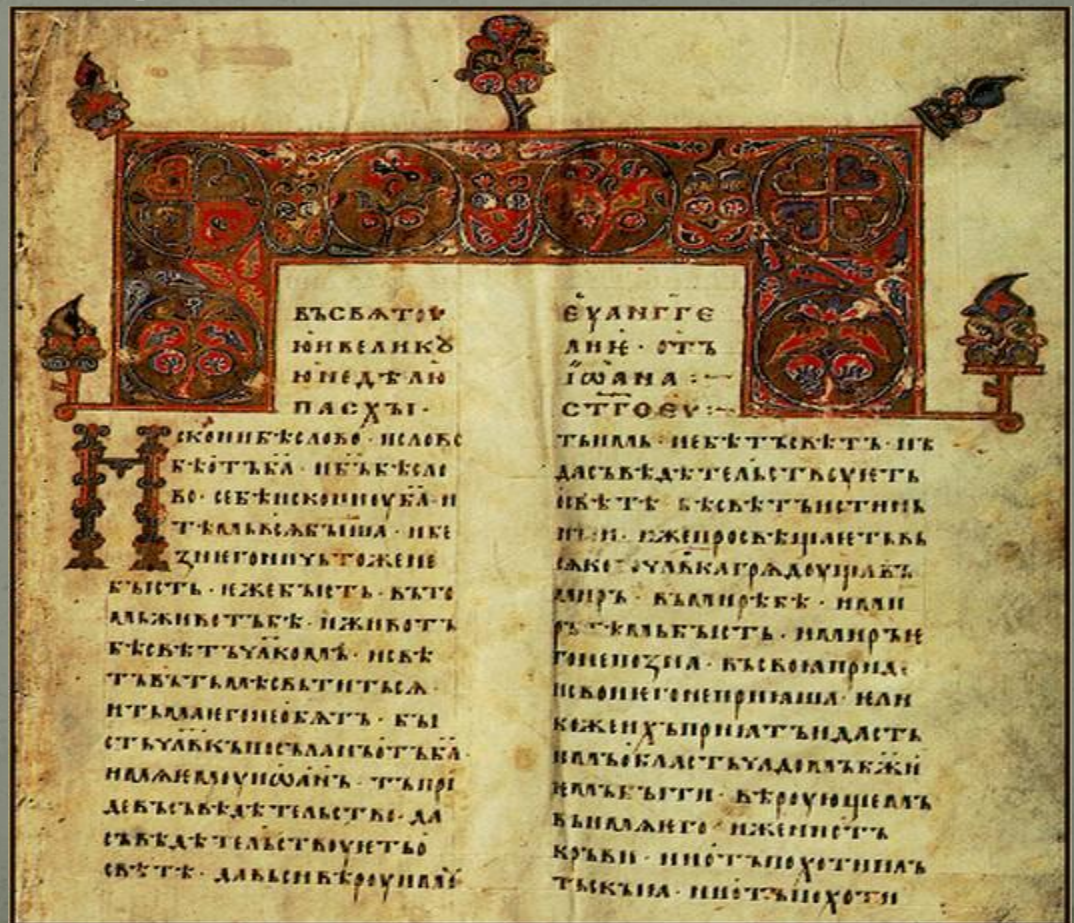 ВЪСВѦТОУ
ЮИВЕЛИКꙊ
ЮНЕДѢЛЮ
ПАСХЪІ·
ИСКОНИБѢСЛОВО · ИСЛОВО
БѢОТЪБА · ИБЪБѢСЛО
ВО · СЕБѢИСКОНИОУБА · И
ТѢМЬВСѦБЪІША · ИБЕ
ꙁНЕГОНИЧЬТОЖЕНЕ
БЪІСТЬ · ЕЖЕБЪІСТЬ · ВЪТО
МЬЖИВОТЪБѢ · ИЖИВОТЪ
БѢСВѢТЪЧЛКОМЪ · ИСВѢ
ТЪВЪТЬМѢСВЬТИТЬСѦ ·
ИТЬМАЕГОНЕОБѦТЪ · БЪІ
СТЬЧЛВКЪПОСЪЛАНЪОТЪБА ·
ИМѦЕМОУИѠАНЪ · ТЪПРІ
ДЕВЪСЪВѢДѢТЕЛЬСТВО · ДА
СЪВѢДѢТЕЛЬСТВОУѤТЬО
СВѢТѢ · ДАВЬСИВѢРОУИМѪ
ЕУАНГГЕ
ЛИѤ · ОТЪ
ІѠАНА :~
СТГОЕУ :~
ТЬИМЬ · НЕБѢТЪСВѢТЪ · НЪ
ДАСЪВѢДѢТЕЛЬСТВОУѤТЬ
ОСВѢТѢ БѢСВѢТЪИСТИНЬ
НЪІИ · ИЖЕПРОСВѢЩАѤТЬВЬ
СѦКОГОЧЛВКАГРѦДОУЩАВЪ
МИРЪ · ВЪМИРѢБѢ · ИМИ
РЪТѢМЬБЪІСТЬ · ИМИРЪѤ
ГОНЕПОꙁНА · ВЪСВОꙖПРИДЕ
ИСВОИѤГОНЕПРИꙖША · ЕЛИ
КОЖЕИХЪПРИꙖТЪИДАСТЬ
ИМЪОБЛАСТЬЧАДОМЪБЖИ
ЕМЪБЪІТИ · ВѢРОУЮЩЕМЪ
ВЪИМѦЕГО ИЖЕНИОТЪ
КРЪВИ · НИОТЪПОХОТИПЛЪ
ТЬСКЪІѦ · НИОТЪПОХОТИ